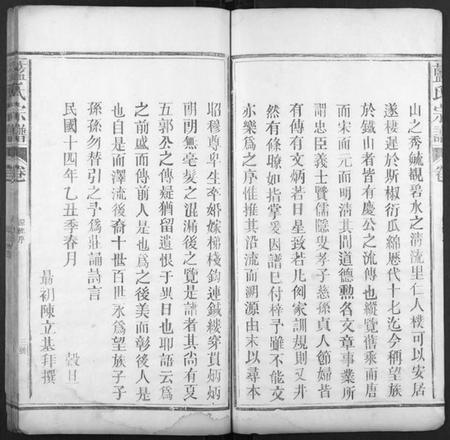 藍氏宗譜
卷
山之秀毓觀碧水之清流里仁人樸可以安居
遂棲遲於斯椒衍瓜綿歷代十七迄今稱望族
於鐵山者皆有慶公之流傳也縱覽舊乘而唐
而宋而元而明清其間道德勲名文章事業所
謂忠臣義士賢儒隱叟孝子慈孫貞人節婦皆
有傳有文炳若日星致若凡例家訓規則又井
然有條暸如指掌爰因譜巳付梓予雖不能文
亦樂為之序惟推其沿流而溯源由末以尋本
昭穆尊卑生卒婚嫁梯棧鈎連鍼縷穿貫炳炳
朗朗無毫髮之混漏後之覽是譜者其尚有夏
五郭公之傳疑猶留遺恨于異日也耶語云為
之前盛而傳前人是也為之後美而彰後人是
也自是而澤流後裔十世百世永為望族子子
孫孫勿替引之予為莊誦詩言
民國十四年乙丑季春月 穀旦
最初陳立基拜撰
藍氏宗譜
卷